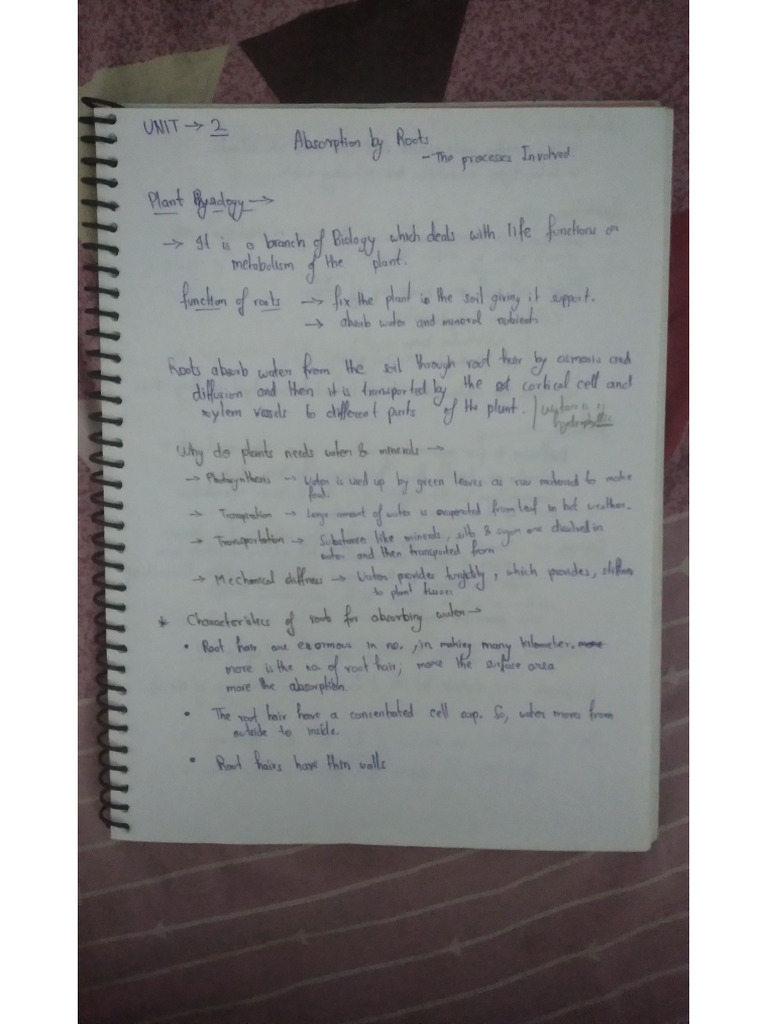 UNIT → 2
Absorption by Roots
- The processes Involved.
Plant →
→ It is a branch of Biology which deals with life functions or
metabolism of the plant.
function of roots → fix the plant in the soil giving it support.
→ absorb water and mineral nutrients
Roots absorb water from the soil through root hair by osmosis and
diffusion and then it is transported by the cortical cell and
xylem vessels to different parts of the plant. | water is
Why do plants needs water & minerals →
→ Photosynthesis → Water is used up by green leaves as raw material to make
food.
→ Transpiration → Large amount of water is evaporated from leaf in hot weather.
→ Transportation → Substances like minerals, salts & sugar are dissolved in
water and then transported from
→ Mechanical stiffness → Water provides turgidity, which provides, stiffness
to plant tissues
* Characteristics of roots for absorbing water →
• Root hair are enormous in no., in making many kilometer. more
more is the no. of root hair, more the surface area
more the absorption.
• The root hair have a concentrated cell sap. So, water moves from
outside to inside.
• Root hairs have thin walls